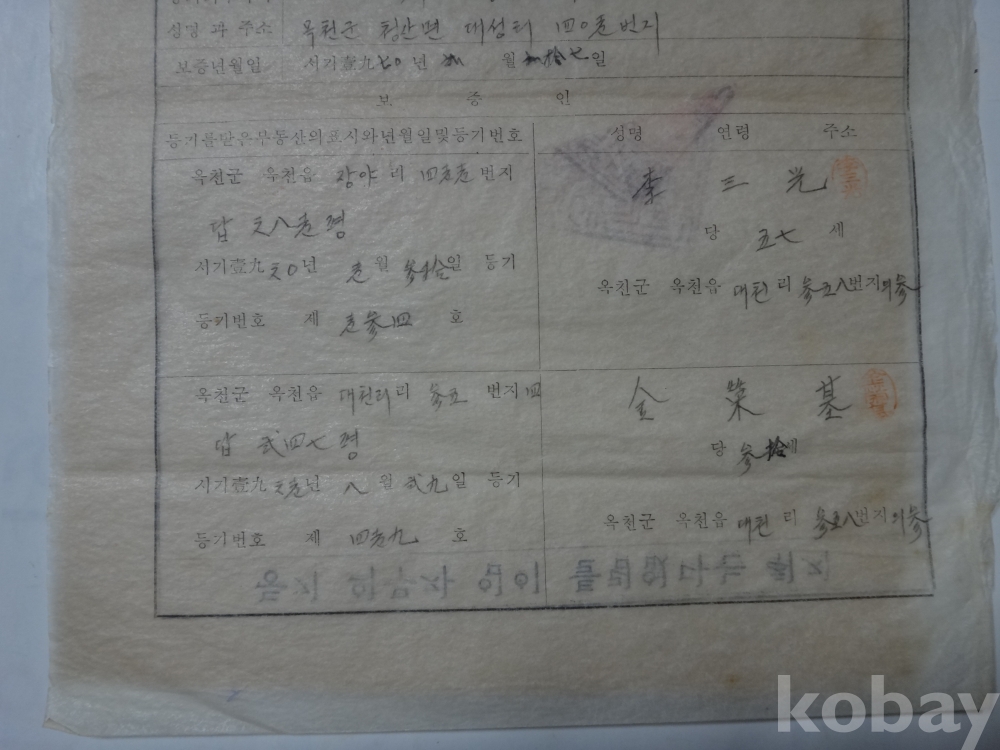 성명 과 주소 옥천군 청산면 대성리 四〇壱번지
보증년월일 서기壹九七〇년 월 拾七일
보 증 인
등기를받은부동산의표시와년월일및등기번호 성명 연령 주소
옥천군 옥천읍 장야 리 번지 李 三 光
답 八壱평 당 五七 세
서기壹九 〇년 壱월 参拾일 등기 옥천군 옥천읍 대천 리 参五八번지의参
등기번호 제 壱参四 호
옥천군 옥천읍 대천리리 参五 번지四 金 榮 基
답 弍四七평 당 参拾세
서기壹九 년 八 월 弍九일 등기 옥천군 옥천읍 대천 리 参五八번지의参
등기번호 제 四壱九 호
kobay